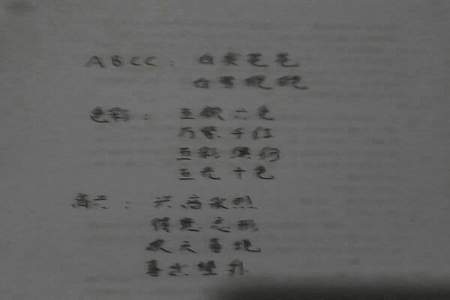 ABCC：白发苍苍
白雪皑皑
色彩：五颜六色
万紫千红
五彩缤纷
五光十色
高兴：兴高采烈
得意忘形
欢天喜地
喜出望外